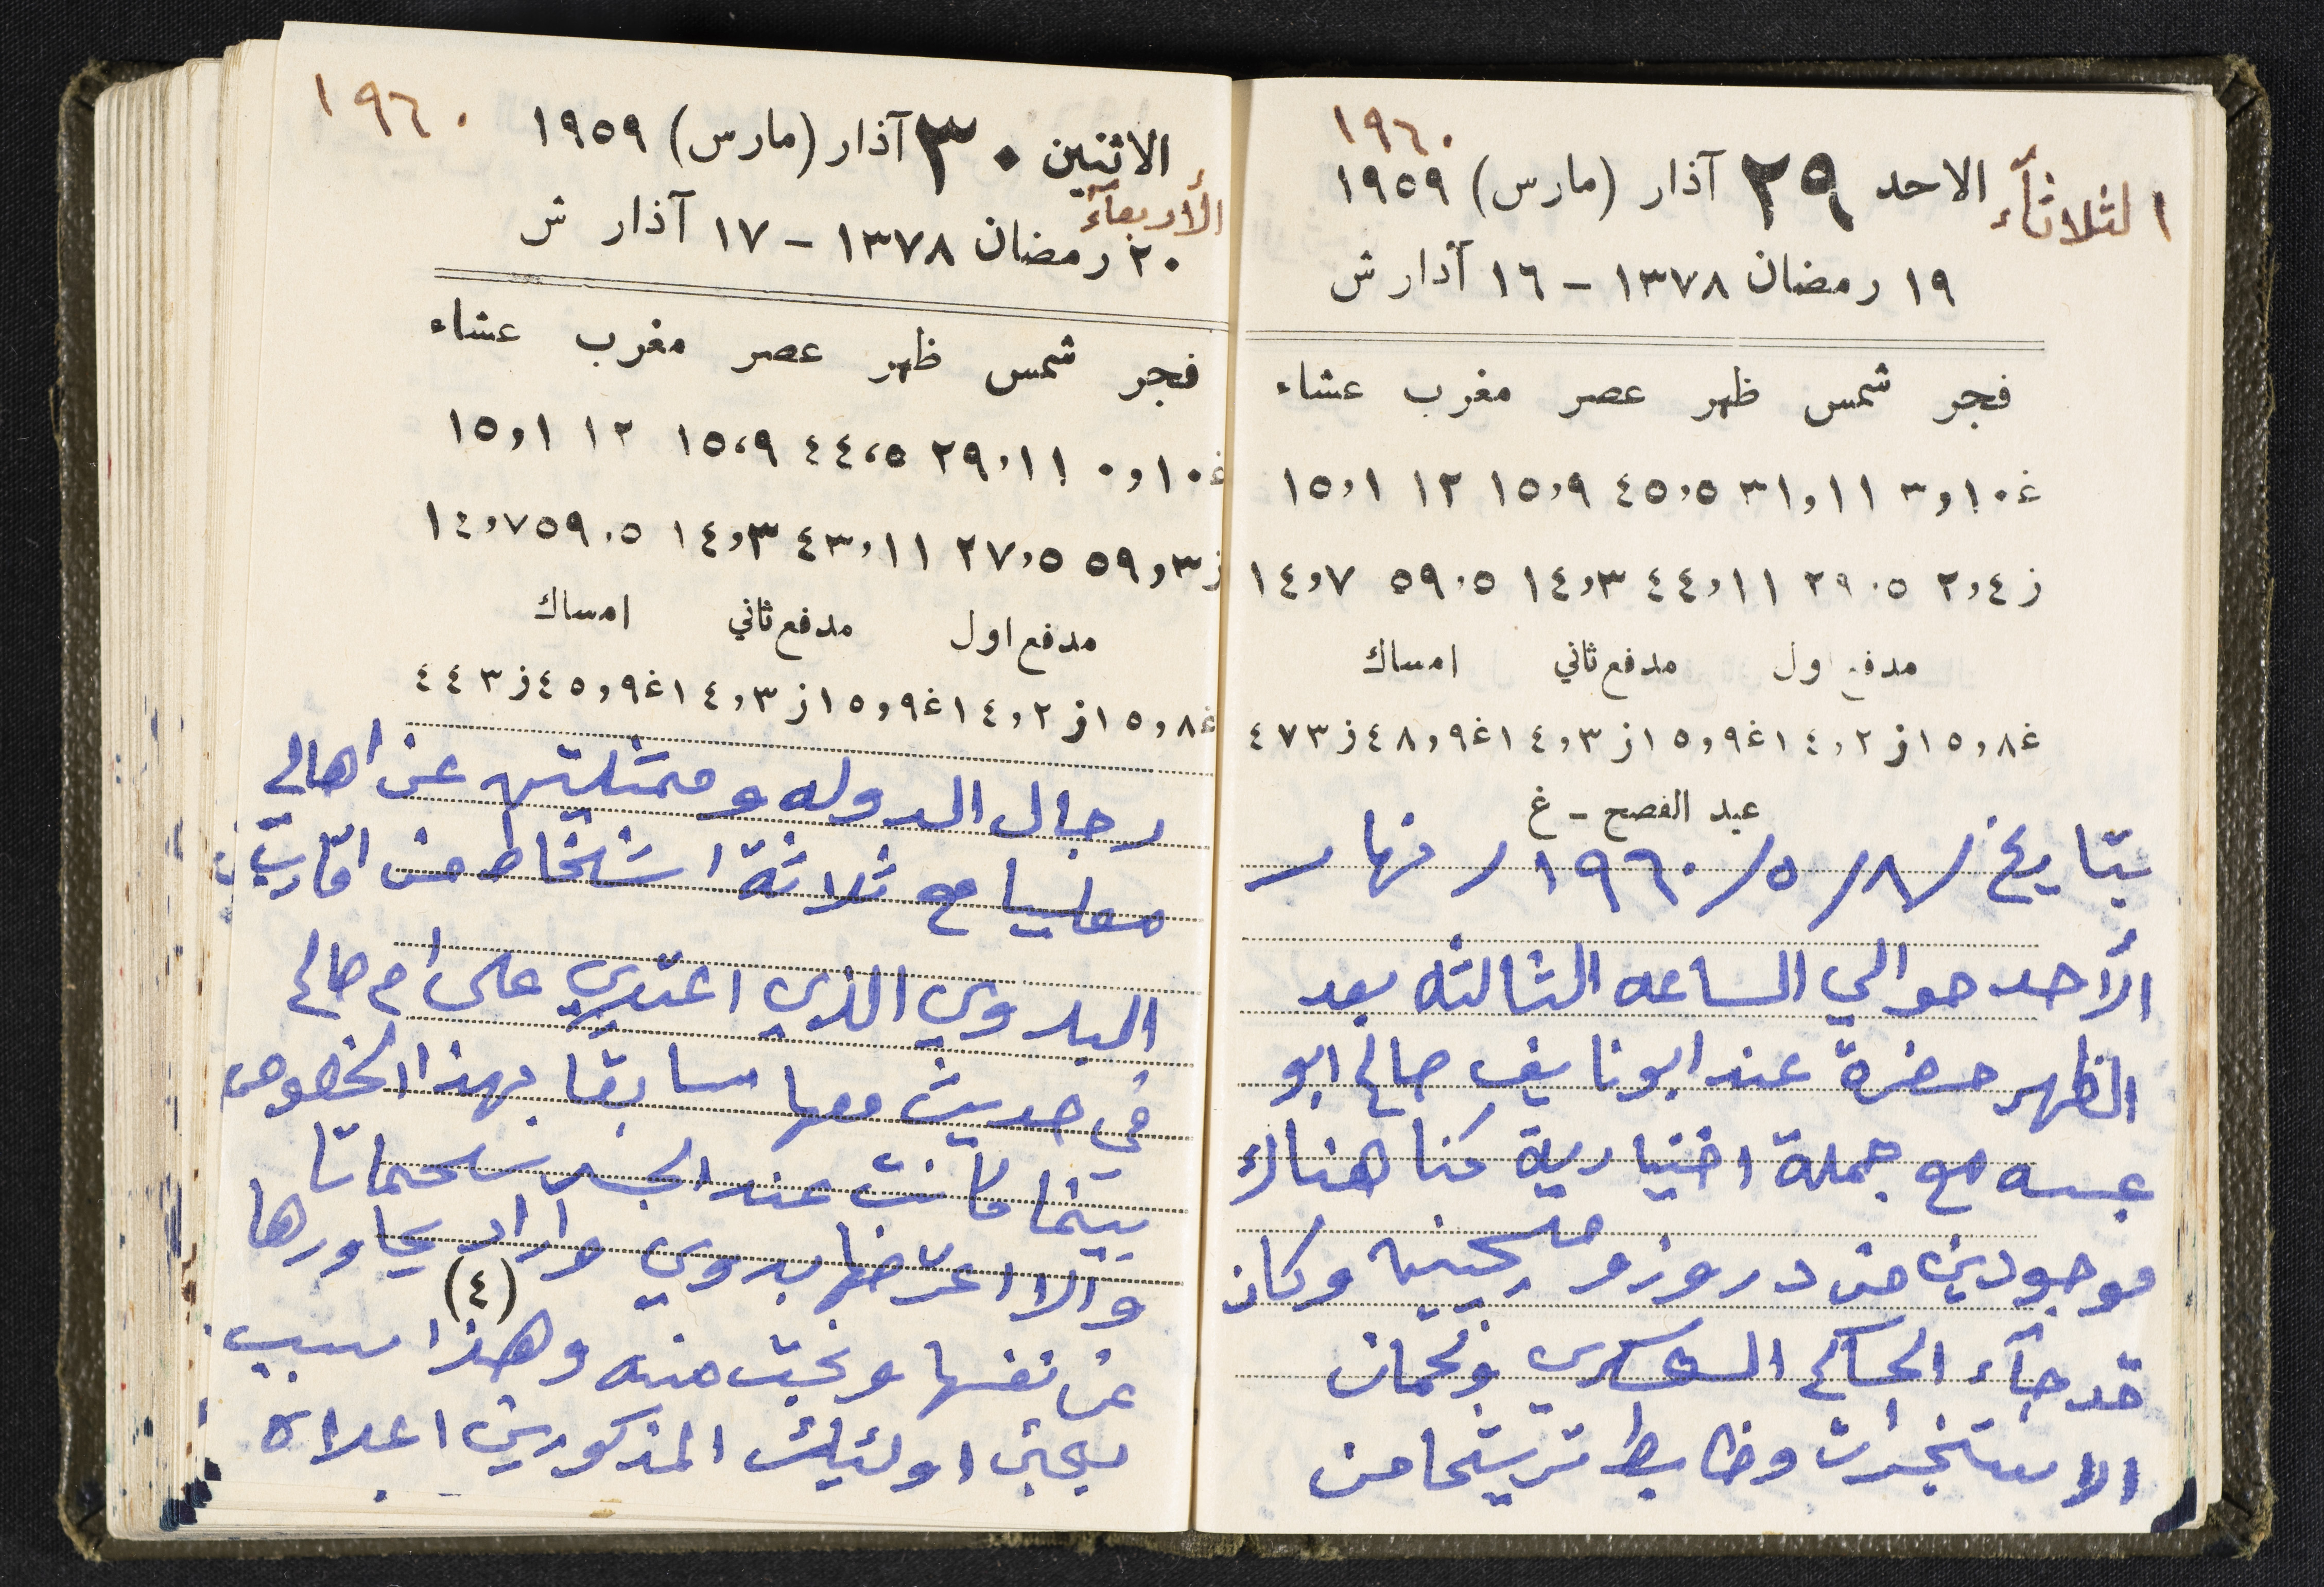 ١٩٦٠
الثلاثآء الاحد ٢٩ آذار (مارس) ١٩٥٩
١٩ رمضان ١٣٧٨ – ١٦ آذار ش
فجر شمس ظهر عصر مغرب عشاء
غ ١٠,٣ ١١,٣١ ٥,٤٥ ٩,١٥ ١٢ ١,١٥
ز ٤,٢ ٥,٢٩ ١١,٤٤ ٣,١٤ ٥,٥٩ ٧,١٤
مدفع اول مدفع ثاني امساك
غ ٨,١٥ ز ٢,١٤ غ ٩,١٥ ز ٣,١٤ غ ٩,٤٨ ز ٣ ٤٧
عيد الفصح – غ
بتاريخ /٨/ ٥/ ١٩٦٠/ نهار
الأحد حوالي الساعه الثالثه بعد
الظهر حضرة عند ابو نايف صالح ابو
عبسه مع جملة اختيارية كنا هناك
موجودين من دروز ومسيحية وكان
قد جآء الحاكم العسكري ونحمان
الاستخبرات وظابط ترشيحا من
١٩٦٠
الاثنين ٣٠ آذار (مارس) ١٩٥٩
الأربعآء
٢٠ رمضان ١٣٧٨ – ١٧ آذار ش
فجر شمس ظهر عصر مغرب عشاء
غ ١٠,٠ ١١,٢٩ ٥,٤٤ ٩,١٥ ١٢ ١,١٥
ز ٣,٥٩ ٥,٢٧ ١١,٤٣ ٣,١٤ ٥,٥٩ ٧,١٤
مدفع اول مدفع ثاني امساك
غ ٨,١٥ ز ٢,١٤ غ ٩,١٥ ز ٣,١٤ غ ٩,٤٥ ز ٣ ٤٤
رجال الدوله وممثليين عن اهالي
معليا مع ثلاثة اشخاط من اقارب
البدوي الذي اعتدي على ام صالح
في حديث معها سابقا بهذا الخصوص
بينما كانت عند الجسر
والا اعترضها بدوي واراد يحاورها
(٤)
عن نفسها ونجت منه وهذا سبب
بمجئ اولئيك المذكورين اعلاه